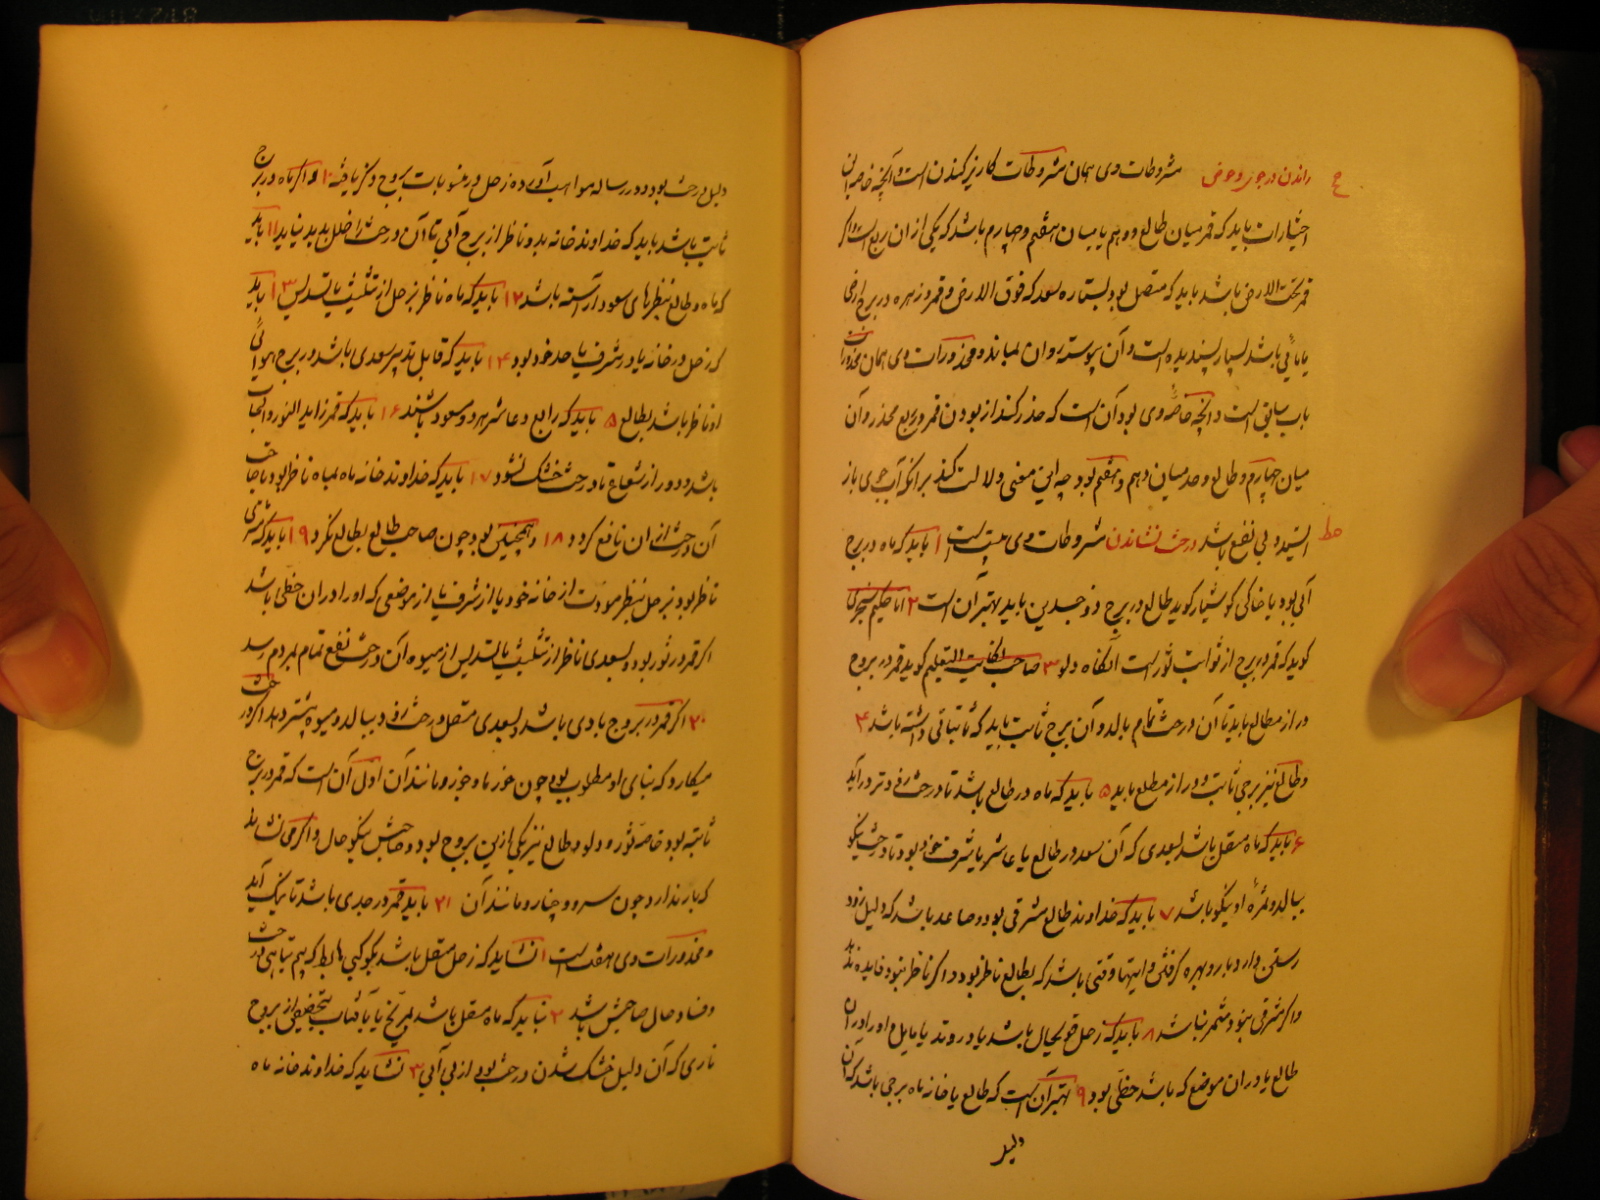 ح راندن در جوی و حوض مشروطات وی همان مشروطات کاریز کندن است و آنچه خاصه این
اختیارات باید که قمر میان طالع و دهم یا میان هفتم و چهارم باشد که یکی از آن ربع است و اگر
قمر تحت الارض باشد باید که متصل بود بستاره سعد که فوق الارض و قمر و زهره در برج ارضی
یا مائی باشد بسیار پسندیده است و آن پیوسته روان بماند و محذورات وی همان محذورات
باب سابق است و آنچه خاصه وی بود آن است که حذر کند از بودن قمر در ربع محذر و آن
میان چهارم و طالع و صد میان دهم و هفتم بود چه این معنی دلالت کند بر آنکه آب جوی باز
ایستد و بی نفع باشد درخت نشاندن مشروطات وی بیست است ۱ باید که ماه در برج
حط
آبی بود یا خاکی کوشیار کوید طالع در برج ذو جسدین باید بهتر آن است ۲ اما حکیم سنجری
کوید که قمر در برج از ثوابت ثور است آنگاه دلو ۳ صاحب کفایت التعلیم کوید قمر در بروج
دراز مطالع باید تا آن درخت تمام بالد و آن برج ثابت باید که تا ثباتی داشته باشد ۴
و طالع نیز برجی ثابت و دراز مطلع باید ۵ باید که ماه در طالع باشد تا درخت زودتر در آید
۶ باید که ماه متصل باشد بسعدی که آن سعد در طالع یا عاشر یا شرف خود بود تا درخت نیکو
ببالد و ثمره او نیکو باشد ۷ باید که خداوند طالع مشرقی بود و صاعد باشد که دلیل زود
رستن دارد بار و بهره گرفتن و اینها وقتی باشد که بطالع ناظر بود و اگر ناظر نبود فایده ندهد
و اگر مشرقی نبود مثمر نباشد ۸ باید که زحل قوی حال باشد یا در وتد یا مایل و او را در آن
طالع یا در آن موضع که باشد حظی بود ۹ بهتر آن است که طالع یا خانه ماه برجی باشد که آن
دلیل
دلیل درخت بود و در رساله مواهب آورده زحل در منسوبات بروج ذکر یافته ۱۰ و اگر ماه در برج
ثابت باشد باید که خداوند خانه بدو ناظر از برج آبی تا آن درخت را خلل پدید نیاید ۱۱ باید
که ماه و طالع بنظرهای سعود آراسته باشد ۱۲ باید که ماه ناظر بزحل از تثلیث یا تسدیس ۱۳ باید
که زحل در خانه یا در شرف یا حد خود بود ۱۴ باید که قابل تدبیر سعدی باشد در برج هوائی
او ناظر باشد بطالع ۵ باید که رابع و عاشر هر دو مسعود باشند ۱۶ باید که قمر زاید النور و الحساب
باشد و دور از شعاع تا درخت خشک نشود ۱۷ باید که خداوند خانه ماه بماه ناظر بود تا صاحب
آن درخت از آن نافع کردد ۱۸ و همچنین بود چون صاحب طالع بطالع نگرد ۱۹ باید که مشتری
ناظر بود بزحل بنظر مودت از خانه خود یا از شرف یا از موضعی که او را در آن حظی باشد
اگر قمر در ثور بود و بسعدی ناظر از تثلیث یا تسدیس از میوه آن درخت نفع تمام بمردم رسد
۲۰ اگر قمر در بروج بادی باشد و بسعدی متصل درخت زود ببالد و میوه بیشتر دهد اگر درخت
میکارد که بنای او مطلوب بود چون خرما و جوز و مانند آن اولی آن است که قمر در برج
ثابته بود خاصه ثور و دلو و طالع نیز یکی از این بروج بود و صاحبش نیکو حال و اگر می نشاند
که بار ندارد چون سرو و چنار و مانند آن ۲۱ باید قمر در جدی باشد تا نیک آید
و محذورات وی هفت است ۱ نشاید که زحل متصل باشد بکوکبی هابط که بیم تباهی درخت
و فساد حال صاحبش باشد ۲ نباید که ماه متصل باشد بمریخ یا بآفتاب بتخصیص از بروج
ناری که آن دلیل خشک شدن درخت بود از بی آبی ۳ نشاید که خداوند خانه ماه